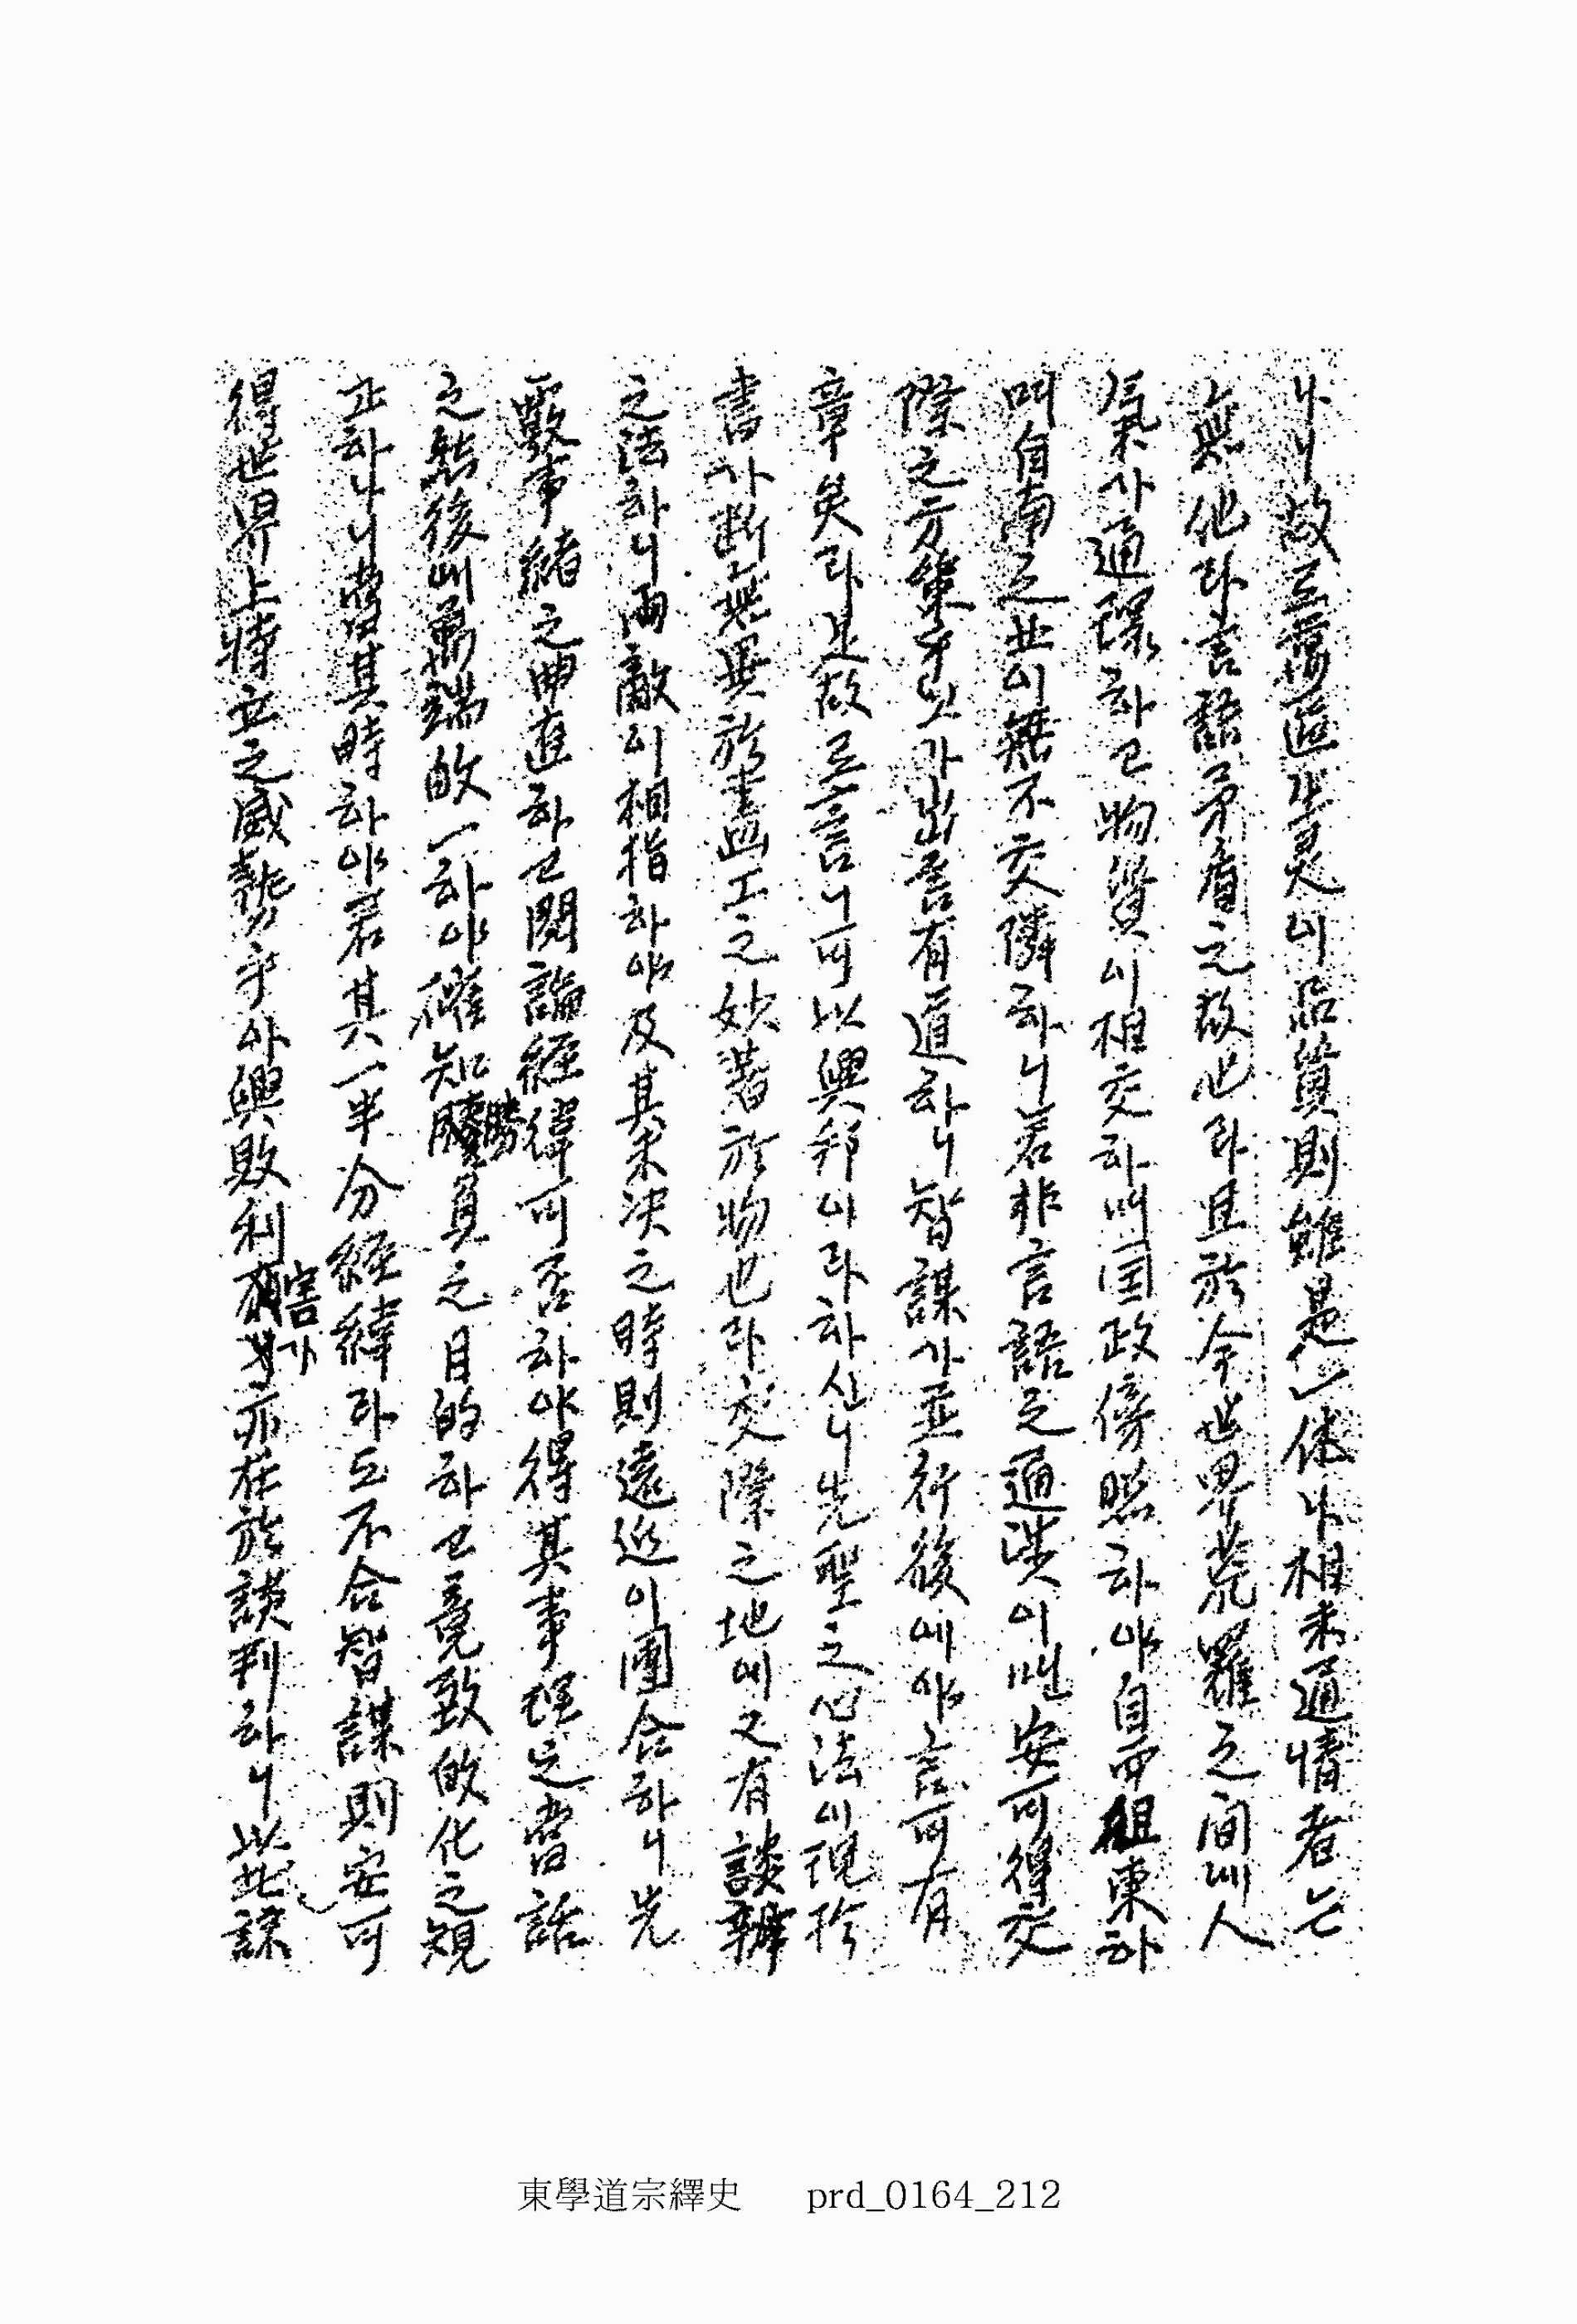 나니 故로 萬區生灵이 品質則雖是一体나 相未通情者는
無他라 言語矛盾之故也라 且於今世界荒羅之間에 人
氣가 通環하고 物質이 相交하며 国政傍照하야 自西徂東하
며 自南之北이 無不交隣하니 若非言語之通涉이면 安可得交
際之方策乎잇가 出言有道하니 智謀가 並行後에야 言可有
章矣라 是故로 言니 可以興邦이라 하시니 先聖之心法이 現於
書가 断無異於畵工之妙著於物也라 交際之地에 又有談辦
之法하니 兩敵이 相指하야 及其未決之時則遠近이 團合하니 先
覈事緖之曲直하고 閱論經緯可否하야 得其事理之當話
之然後에 萬端攸一하야 確知勝負之目的하고 竟致攸化之規
正하나니 當其時하야 若其一半分経緯라도 不合智謀則安可
得世界上特立之威勢乎아 興敗利害가 亦在於談判하니 以此諒
東學道宗繹史 prd_0164_212